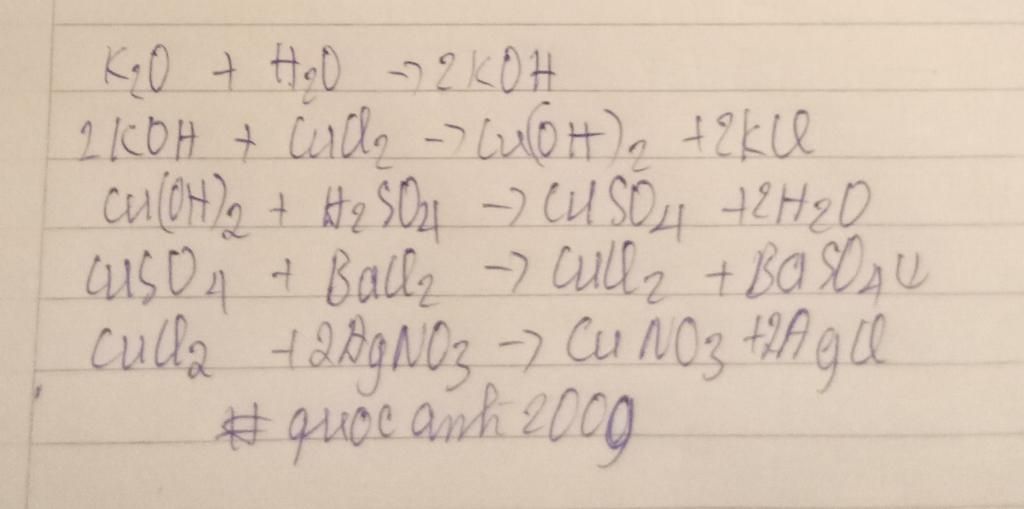 K₂O + H₂O → 2KOH
2KOH + CuCl₂ → Cu(OH)₂ + 2KCl
Cu(OH)₂ + H₂SO₄ → CuSO₄ + 2H₂O
CuSO₄ + BaCl₂ → CuCl₂ + BaSO₄↓
CuCl₂ + 2AgNO₃ → CuNO₃ + 2AgCl
# quoc anh 2009